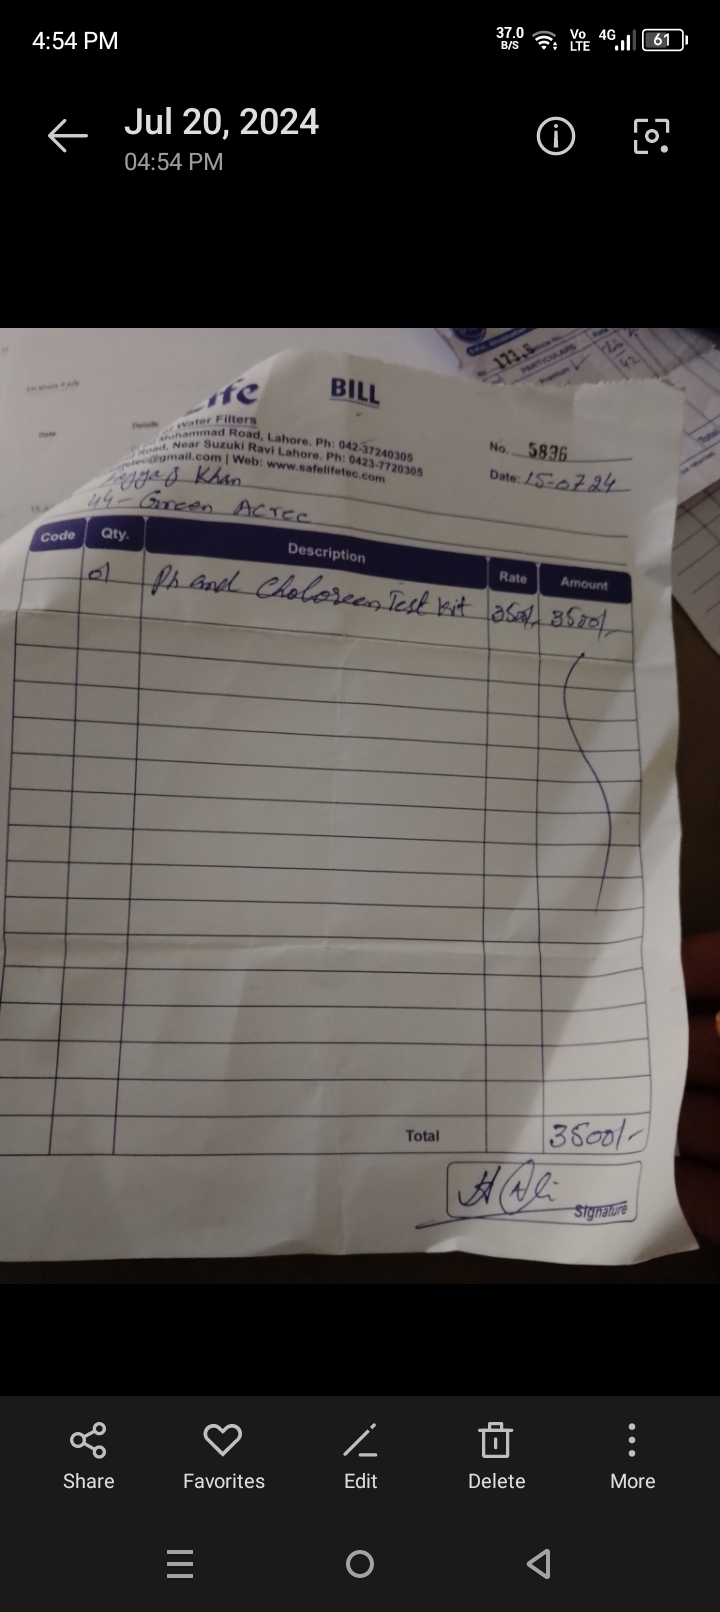 4:54 PM
37.0 B/S
Vo LTE
4G
61
Jul 20, 2024
04:54 PM
BILL
Water Filters
Muhammad Road, Lahore. Ph: 042-37240305
Road, Near Suzuki Ravi Lahore. Ph: 0423-7720305
tec@gmail.com | Web: www.safelifetec.com
No. 5836
Date: 15-0724
Khan
44-Green Acrec
Code Qty. Description Rate Amount
01 Ph and Choloreen Test Kit 3500/- 3500/-
Total 3500/-
Signature
Date
Details
PARTICULARS
Share
Favorites
Edit
Delete
More